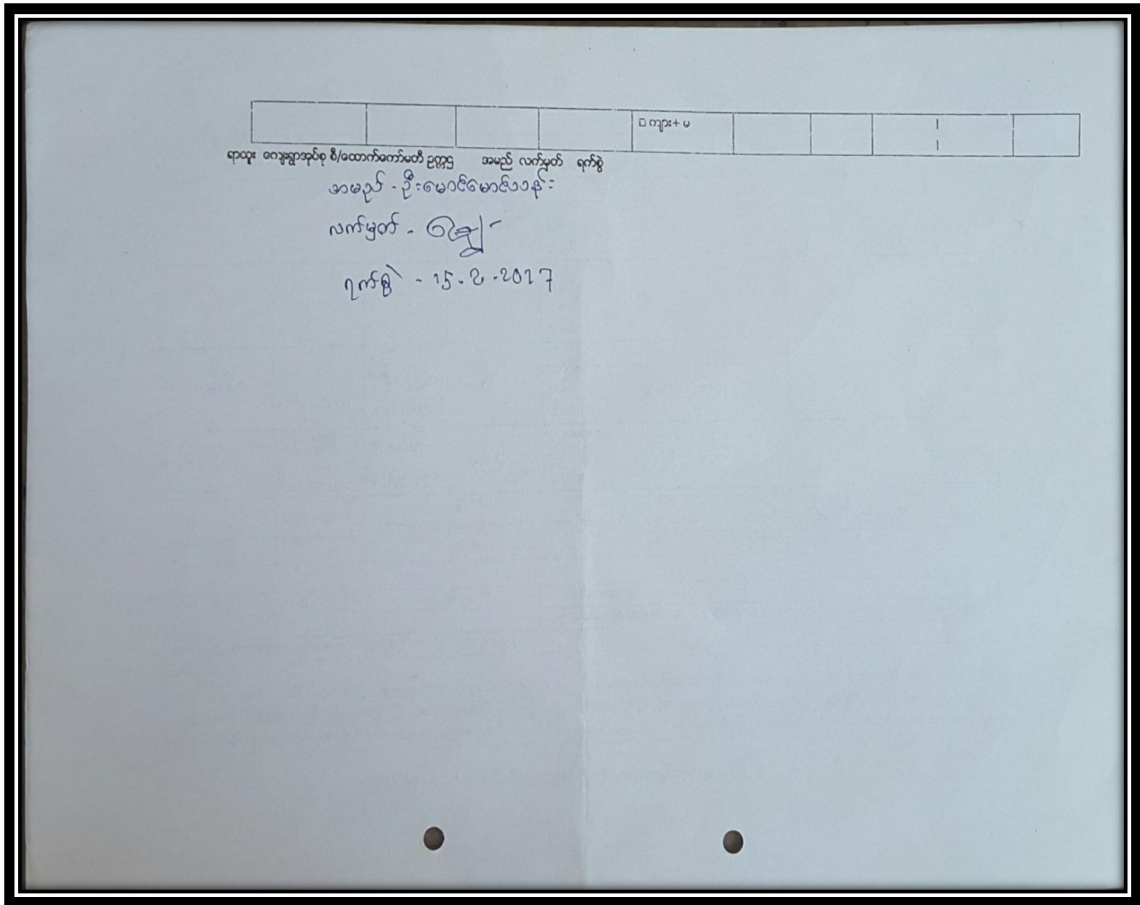 □ ကျား+ မ
ရာထူး ကျေးရွာအုပ်စု စီ/ထောက်ကော်မတီ ဥက္ကဌ အမည် လက်မှတ် ရက်စွဲ
အမည် - ဦးမောင်မောင်သန်း
လက်မှတ် -
ရက်စွဲ - 15.2.2017